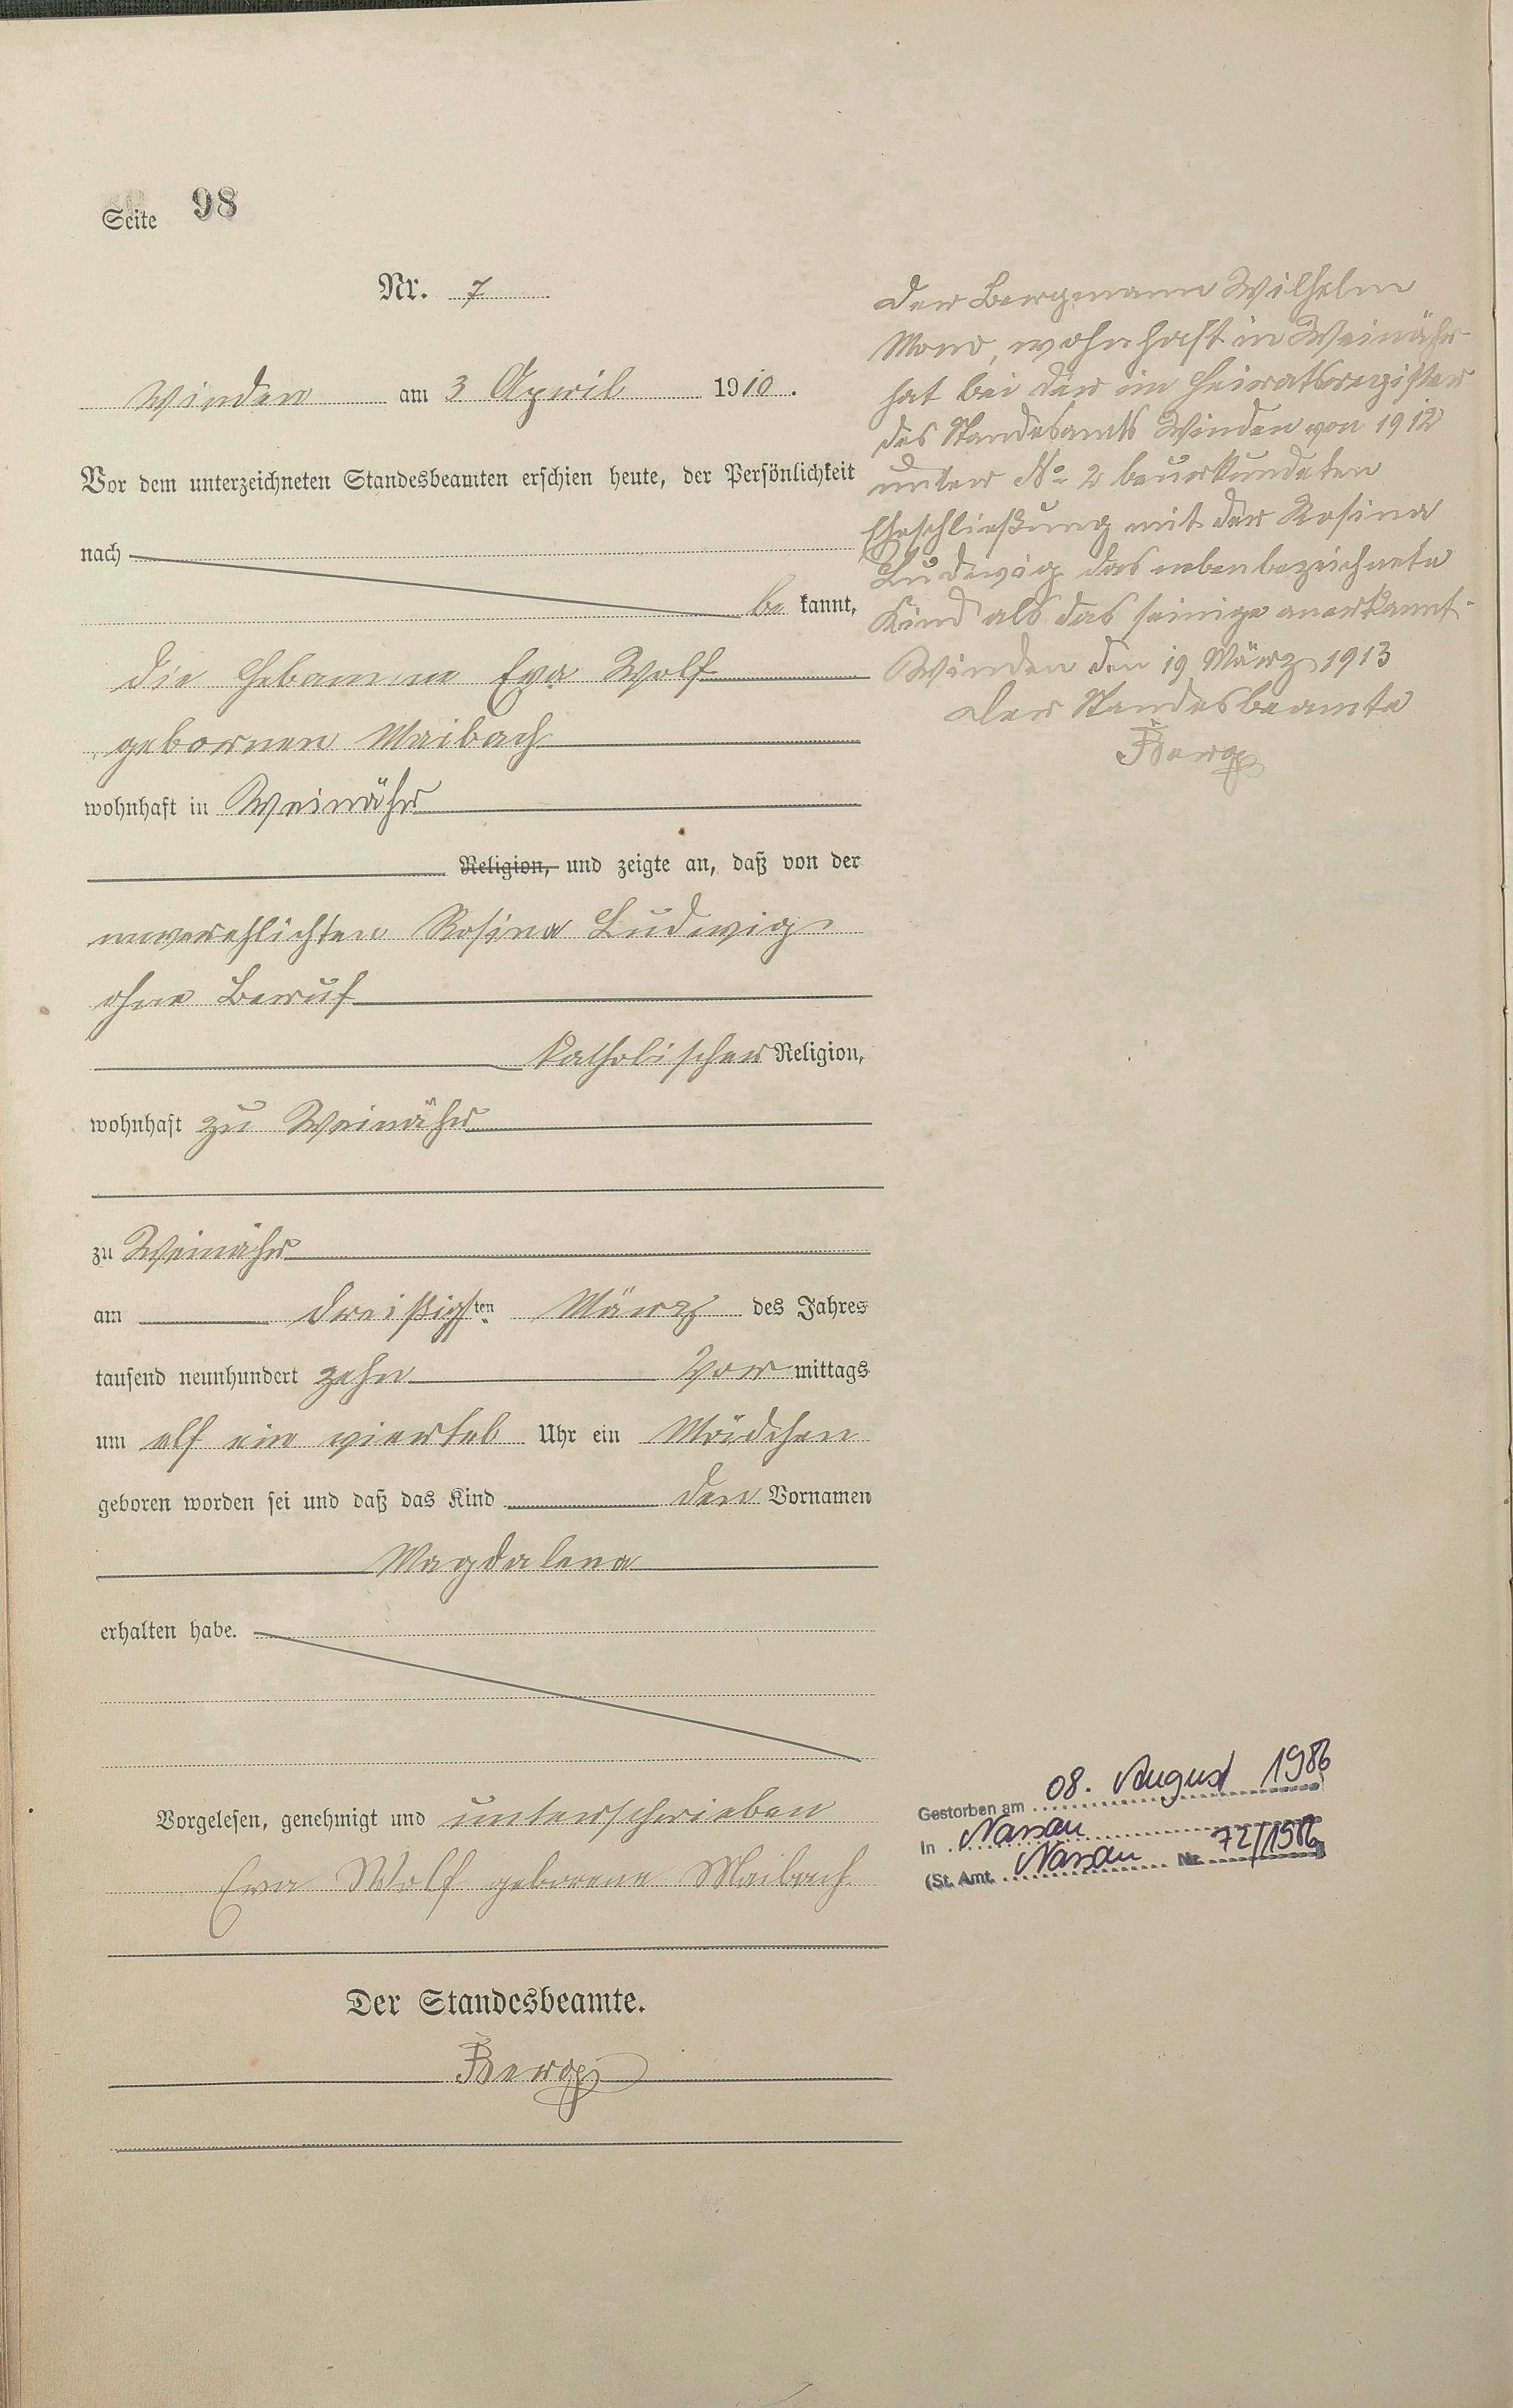 Seite 98
Nr. 7
Winden am 3 April 1910.
Vor dem unterzeichneten Standesbeamten erschien heute, der Persönlichkeit
nach
be kannt,
die Hebamme Eva Wolf
gebornen Maibach
wohnhaft in Weinähr
Religion, und zeigte an, daß von der
unverehlichten Rosina Ludwig
ohne Beruf
katholischer Religion,
wohnhaft zu Weinähr
zu Weinähr
am dreißigsten März des Jahres
tausend neunhundert zehn Vor mittags
um elf ein viertel Uhr ein Mädchen
geboren worden sei und daß das Kind den Vornamen
Magdalena
erhalten habe.
Vorgelesen, genehmigt und unterschrieben
Eva Wolf geborene Maibach
Der Standesbeamte.
Berg
Der Bergmann Wilhelm
wohnhaft in Weinähr
hat bei der im Heiratsregister
des Standesamts Winden von 1912
unter No 2 beurkundeten
Eheschließung mit der Rosina
Ludwig das nebenbezeichnete
Kind als das seinige anerkannt.
Winden den 19 März 1913
Der Standesbeamte
Berg
Gestorben am 08. August 1986
In Nassau
(St. Amt. Nassau Nr. 72/1986)